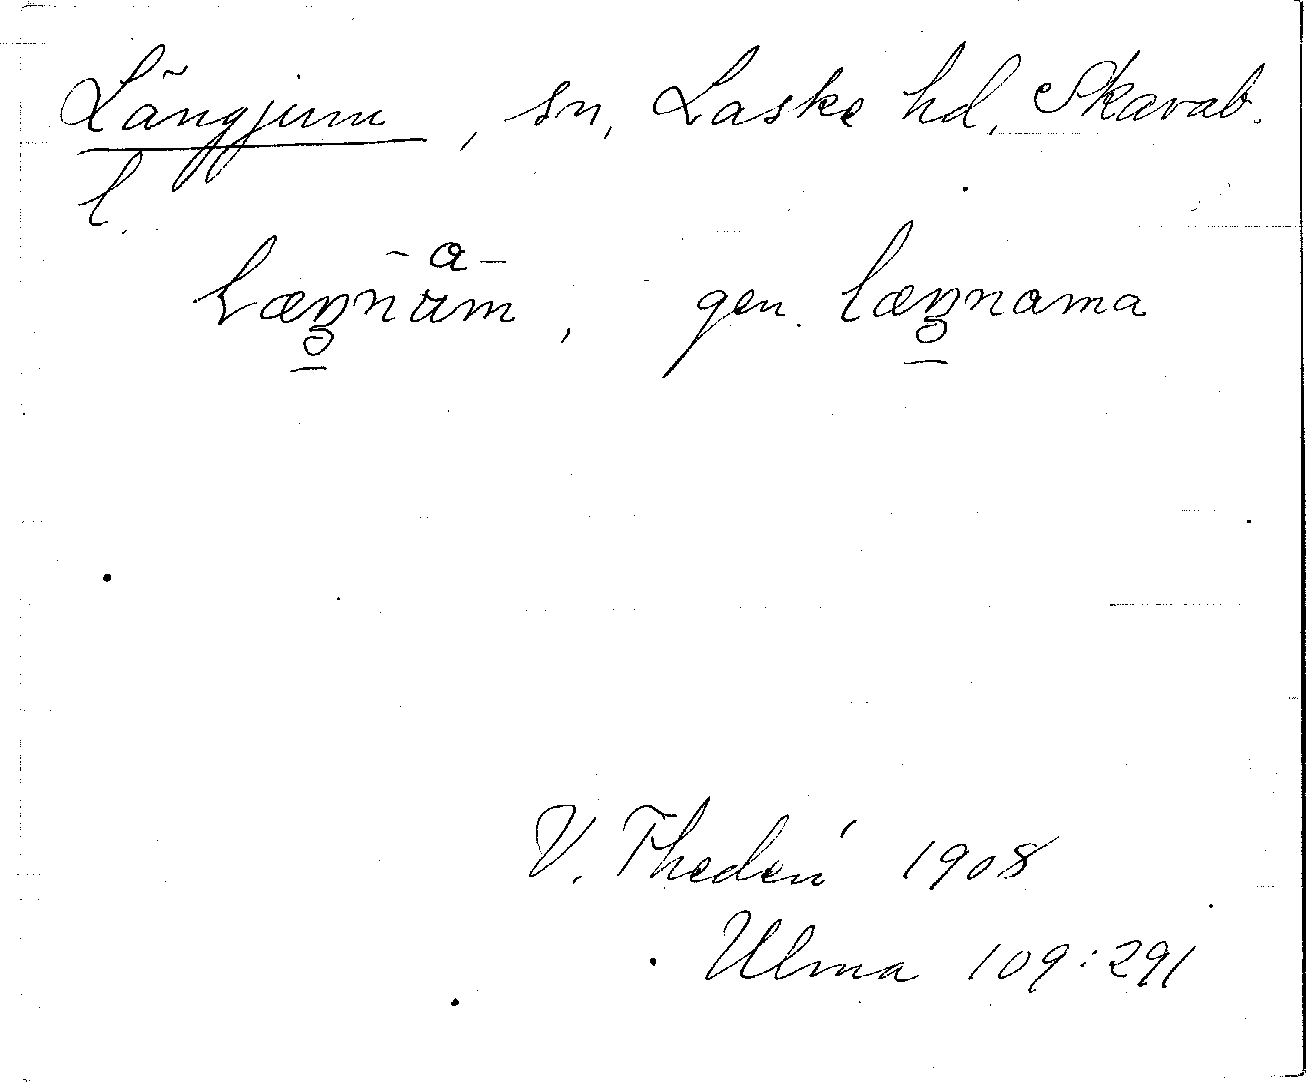 Långjum, sn, Laske hd, Skarab.
l.
-a-
Læŋnäm, gen. læŋnama
V. Thedén 1908
Ulma 109:291